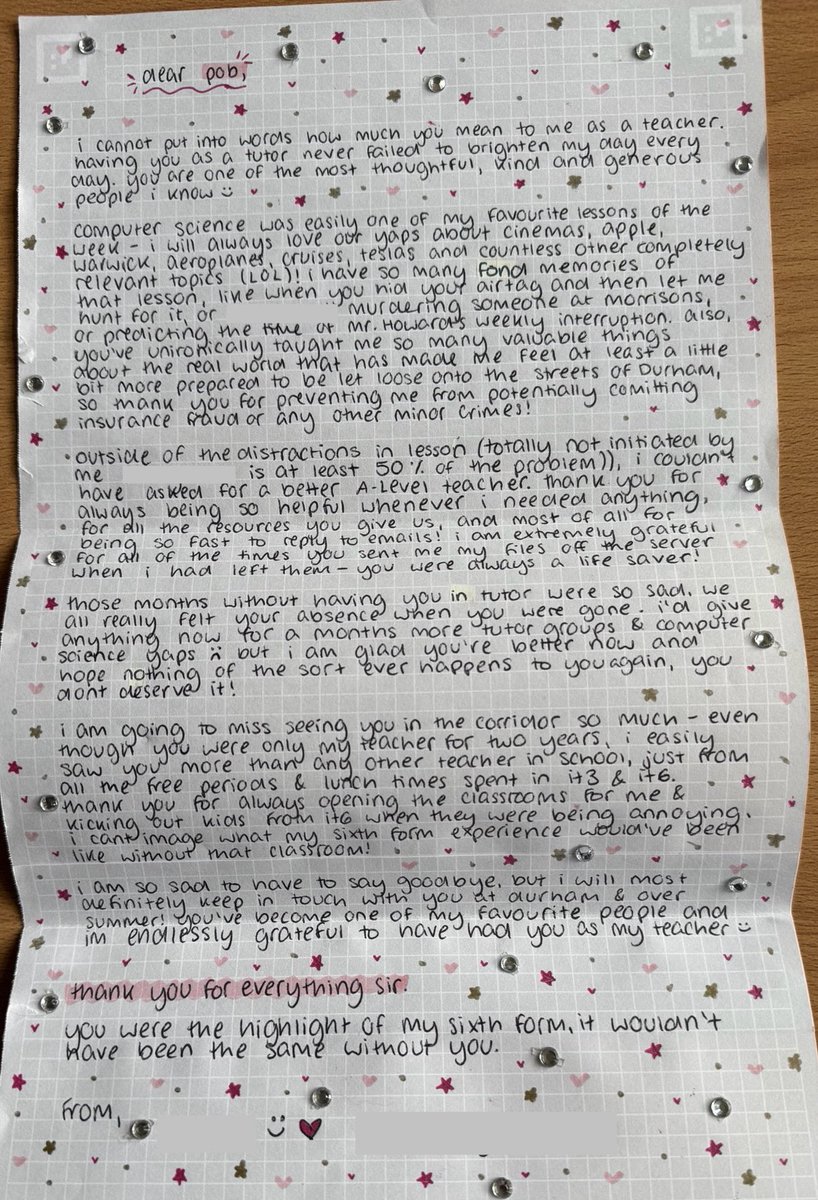 dear pob,
i cannot put into words how much you mean to me as a teacher.
having you as a tutor never failed to brighten my day every
day. you are one of the most thoughtful, kind and generous
people i know :)
computer science was easily one of my favourite lessons of the
week - i will always love our yaps about cinemas, apple,
warwick, aeroplanes, cruises, teslas and countless other completely
relevant topics (LOL)! i have so many fond memories of
that lesson, like when you hid your airtag and then let me
hunt for it, or murdering someone at morrisons,
or predicting the time of Mr. Howard's weekly interruption. also,
you've unironically taught me so many valuable things
about the real world that has made me feel at least a little
bit more prepared to be let loose onto the streets of Durham,
so thank you for preventing me from potentially comitting
insurance fraud or any other minor crimes!
outside of the distractions in lesson (totally not initiated by
me is at least 50% of the problem)), i couldn't
have asked for a better A-Level teacher. thank you for
always being so helpful whenever i needed anything,
for all the resources you give us, and most of all for
being so fast to reply to emails! i am extremely grateful
for all of the times you sent me my files off the server
when i had left them - you were always a life saver!
those months without having you in tutor were so sad. we
all really felt your absence when you were gone. i'd give
anything now for a months more tutor groups & computer
science yaps :( but i am glad you're better now and
hope nothing of the sort ever happens to you again, you
dont deserve it!
i am going to miss seeing you in the corridor so much - even
though you were only my teacher for two years, i easily
saw you more than any other teacher in school, just from
all the free periods & lunch times spent in it3 & it6.
thank you for always opening the classrooms for me &
kicking out kids from it6 when they were being annoying.
i cant image what my sixth form experience would've been
like without that classroom!
i am so sad to have to say goodbye, but i will most
definitely keep in touch with you at durham & over
summer! you've become one of my favourite people and
im endlessly grateful to have had you as my teacher :)
thank you for everything sir.
you were the highlight of my sixth form, it wouldn't
have been the same without you.
from,